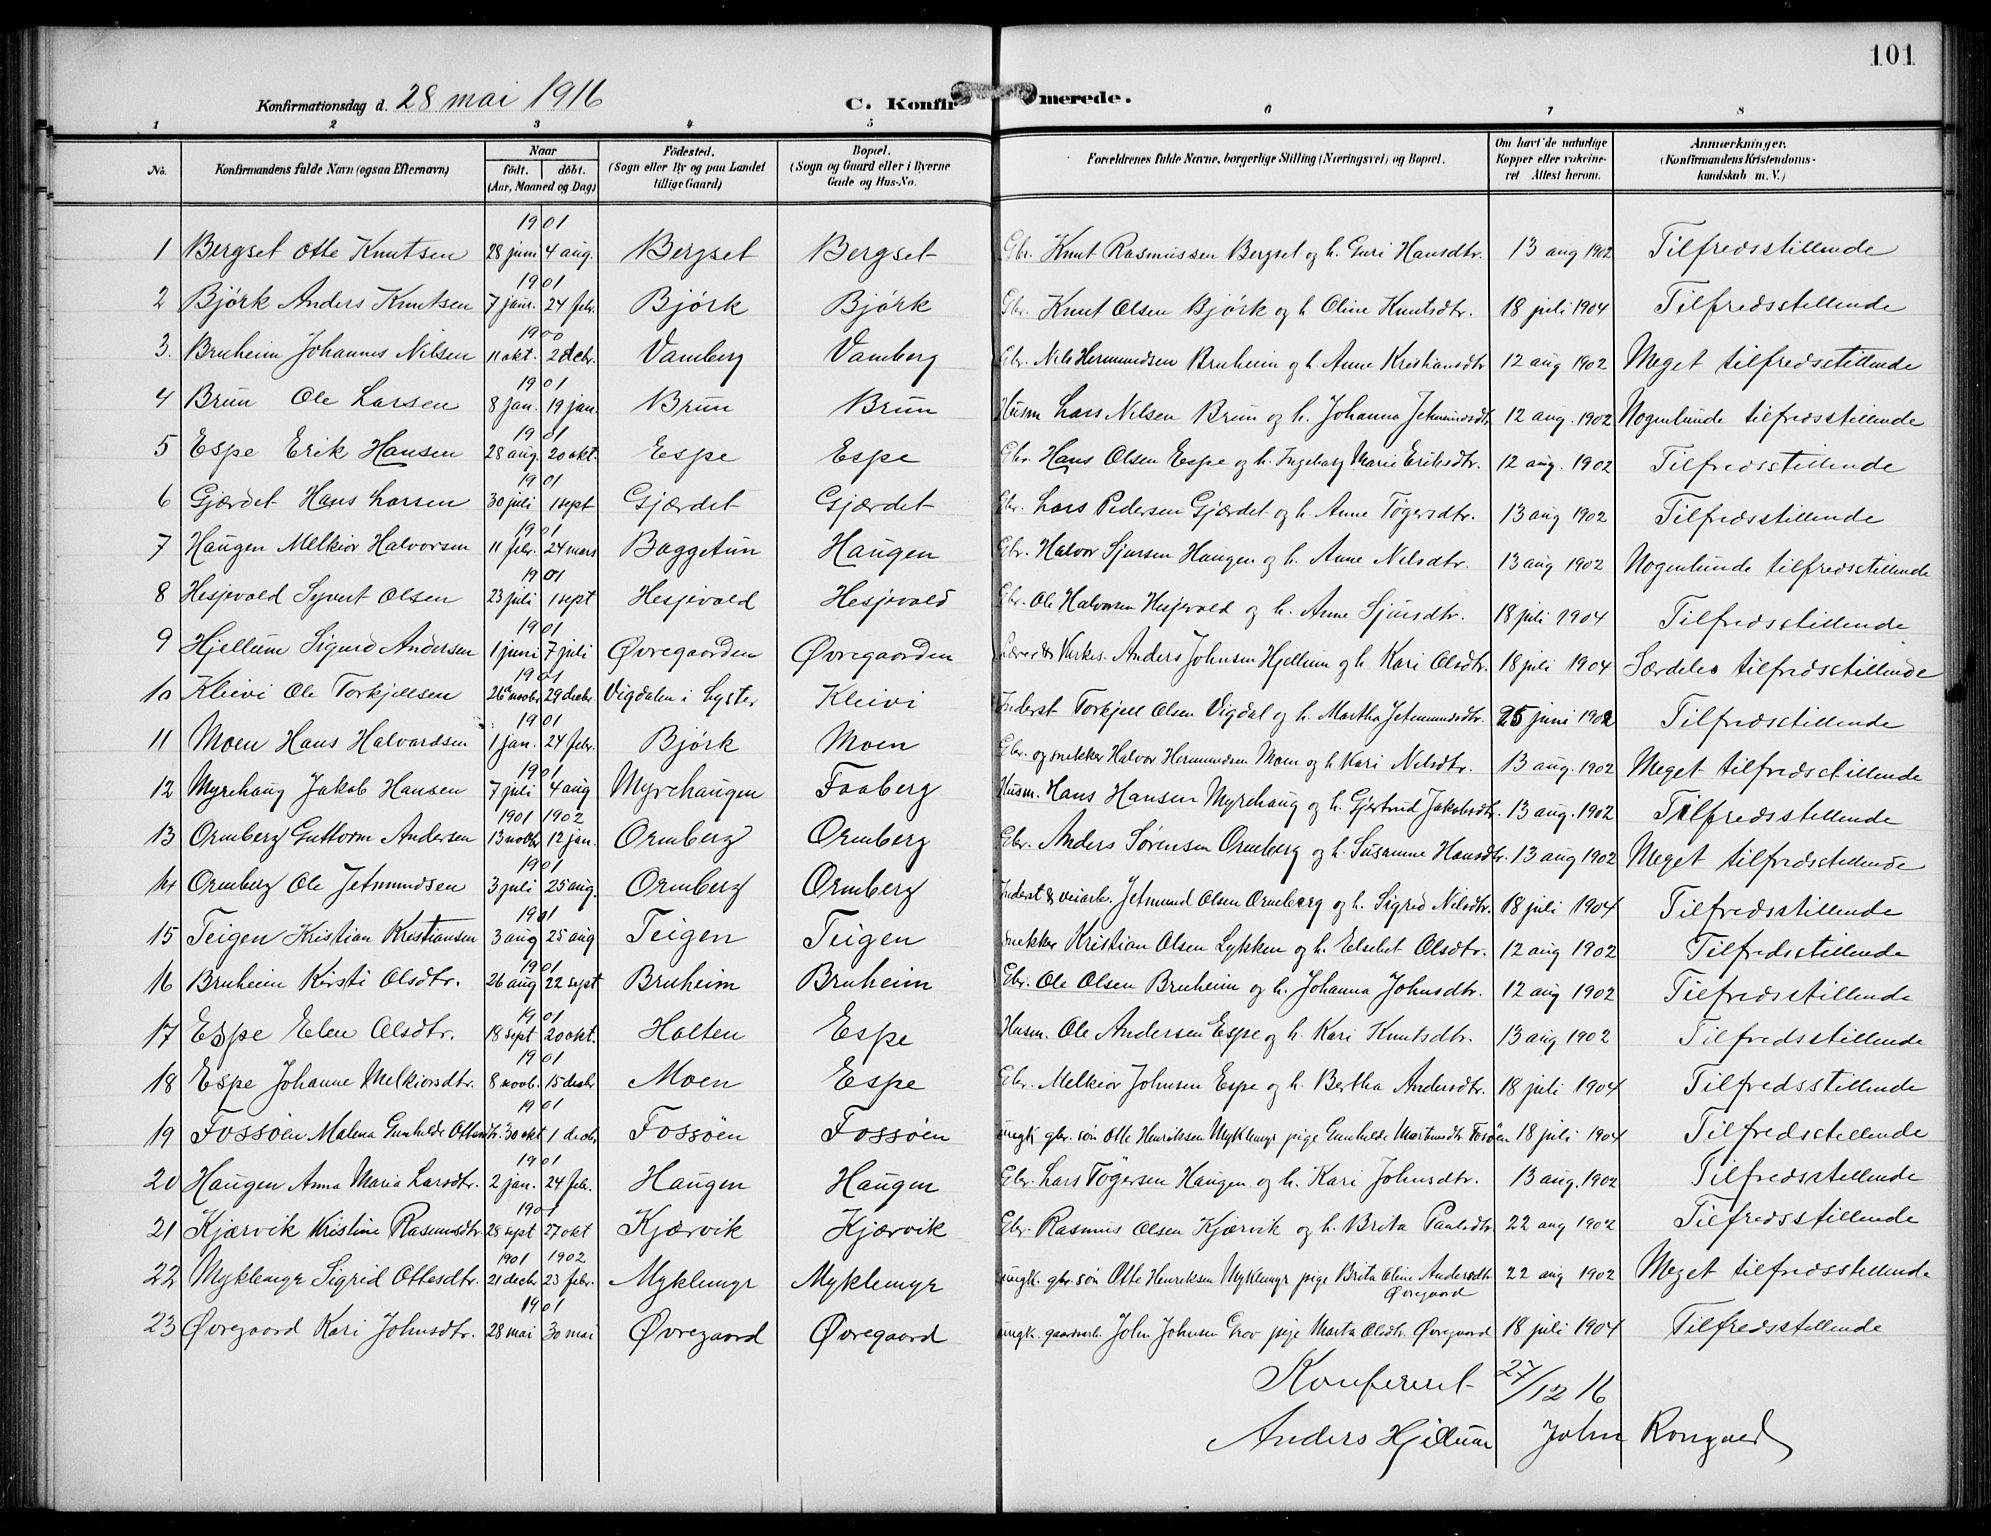 101
Konfirmationsdag d. 28 mai 1916
C. Konfirmerede.
1 2 3 4 5 6 7 8
No. Konfirmandens fulde Navn (ogsaa Efternavn) Naar født. døbt. (Aar, Maaned og Dag) Fødested. (Sogn eller By og paa Landet tillige Gaard) Bopæl. (Sogn og Gaard eller i Byerne Gade og Hus-No. Forældrenes fulde Navne, borgerlige Stilling (Næringsvei) og Bopæl. Om havt de naturlige Kopper eller vakcineret Attest herom. Anmærkninger. (Konfirmandens Kristendomskundskab m. V.)
1901
1 Bergset Otte Knutsen 28 juni 4 aug. Bergset Bergset Gbr. Knut Rasmussen Bergset og h. Guri Hansdtr. 13 aug 1902 Tilfredsstillende
1901
2 Bjørk Anders Knutsen 7 jan. 24 febr. Bjørk Bjørk Gbr. Knut Olsen Bjørk og h Oline Knutsdtr. 18 juli 1904 Tilfredsstillende
1900
3. Bruheim Johannes Nilsen 11 okt. 2 decbr. Vamberg Vamberg Gbr. Nils Hermundsen Bruheim og h. Anne Kristiansdtr 12 aug 1902 Meget tilfredsstillende
1901
4 Brun Ole Larsen 8 jan. 19 jan. Brun Brun Husm Lars Nilsen Brun og h. Johanna Jetmundsdtr 12 aug. 1902 Nogenlunde tilfredsstillende
1901
5 Espe Erik Hansen 28 aug. 20 okt. Espe Espe Gbr. Hans Olsen Espe og h. Ingeborg Marie Eriksdtr. 12 aug. 1902 Tilfredsstillende
1901
6 Gjærdet Hans Larsen 30 juli 1 sept Gjærdet Gjærdet Gbr. Lars Pedersen Gjærdet og h. Anne Tøgersdtr. 13 aug 1902 Tilfredsstillende
1901
7 Haugen Melkior Halvorsen 11 febr. 24 mars Baggetun Haugen Gbr. Halvor Sjursen Haugen og h. Anne Nilsdtr. 13 aug 1902 Nogenlunde tilfredsstillende
1901
8 Hesjevold Syvert Olsen 23 juli 1 sept Hesjevold Hesjevold Gbr. Ole Halvorsen Hesjevold og h. Anne Sjursdtr. 18 juli 1904 Tilfredsstillende
1901
9 Hjellum Sigurd Andersen 1 juni 7 juli Øvregaarden Øvregaarden Lærer & Kirkes. Anders Johnsen Hjellum og h. Kari Olsdtr. 18 juli 1904 Særdeles tilfredsstillende
1901
10 Kleivi Ole Torkjellsen 26 novbr. 29 decbr. Vigdalen i Lyster Kleivi Inderst Torkjell Olsen Vigdal og h. Martha Jetmundsdtr. 25 juni 1902 Tilfredsstillende
1901
11 Moen Hans Halvardsen 1 jan. 24 febr. Bjørk Moen Gbr. og snekker Halvor Hermundsen Moen og h Kari Nilsdtr. 13 aug. 1902 Meget tilfredsstillende
1901
12 Myrehaug Jakob Hansen 7 juli 4 aug Myrehaugen Faaberg Husm. Hans Hansen Myrehaug og h. Gjertrud Jakobsdtr. 13 aug. 1902 Tilfredsstillende
1901 1902
13 Ormberg Guttorm Andersen 13 novbr 12 jan. Ormberg Ormberg Gbr. Anders Sørensen Ormberg og h. Susanne Hansdtr. 13 aug 1902 Meget tilfredsstillende
1901
14 Ormberg Ole Jetmundsen 3 juli 25 aug. Ormberg Ormberg Inderst & veiarb. Jetmund Olsen Ormberg og h. Sigrid Nilsdtr. 18 juli 1904 Tilfredsstillende
1901
15 Teigen Kristian Kristiansen 3 aug 25 aug Teigen Teigen Snekker Kristian Olsen Lykken og h. Elsebet Olsdtr. 12 aug 1902 Tilfredsstillende
1901
16 Bruheim Kirsti Olsdtr. 26 aug 22 sept Bruheim Bruheim Gbr. Ole Olsen Bruheim og h. Johanna Johnsdtr. 12 aug 1902 Tilfredsstillende
1901
17 Espe Elen Olsdtr. 18 sept 20 okt. Holten Espe Husm. Ole Andersen Espe og h. Kari Knutsdtr. 13 aug 1902 Tilfredsstillende
1901
18 Espe Johanne Melkiorsdtr. 8 novb. 15 decbr Moen Espe Gbr. Melkior Johnsen Espe og h. Bertha Andersdtr. 18 juli 1904 Tilfredsstillende
1901
19 Fossøen Malena Gunhilde Ottesdtr. 30 okt 1 decbr Fossøen Fossøen ungk. gbr. søn Otte Henriksen Myklemyr pige Gunhilde Mortensdtr Fosøen 18 juli 1904 Tilfredsstillende
1901
20 Haugen Anna Maria Larsdtr. 2 jan. 24 feb. Haugen Haugen Gbr. Lars Tøgersen Haugen og h. Kari Johnsdtr. 13 aug. 1902 Tilfredsstillende
1901
21 Kjærvik Kristine Rasmusdtr. 28 sept 27 okt Kjærvik Kjærvik Gbr. Rasmus Olsen Kjærvik og h. Brita Paulsdtr 22 aug 1902 Tilfredsstillende
1901 1902
22 Myklemyr Sigrid Ottesdtr. 21 decbr 23 febr. Myklemyr Myklemyr ungk. gbr. søn Otte Henriksen Myklemyr pige Brita Oline Andersdtr. Øvregaard 22 aug 1902 Meget tilfredsstillende
1901
23 Øvregaard Kari Johnsdtr. 28 mai 30 mai Øvregaard Øvregaard ungk. gaardarb. John Johnsen Grov pige Marta Olsdtr. Øvregaard 18 juli 1904 Tilfredsstillende
Konferert 27/12 16
Anders Hjellum John